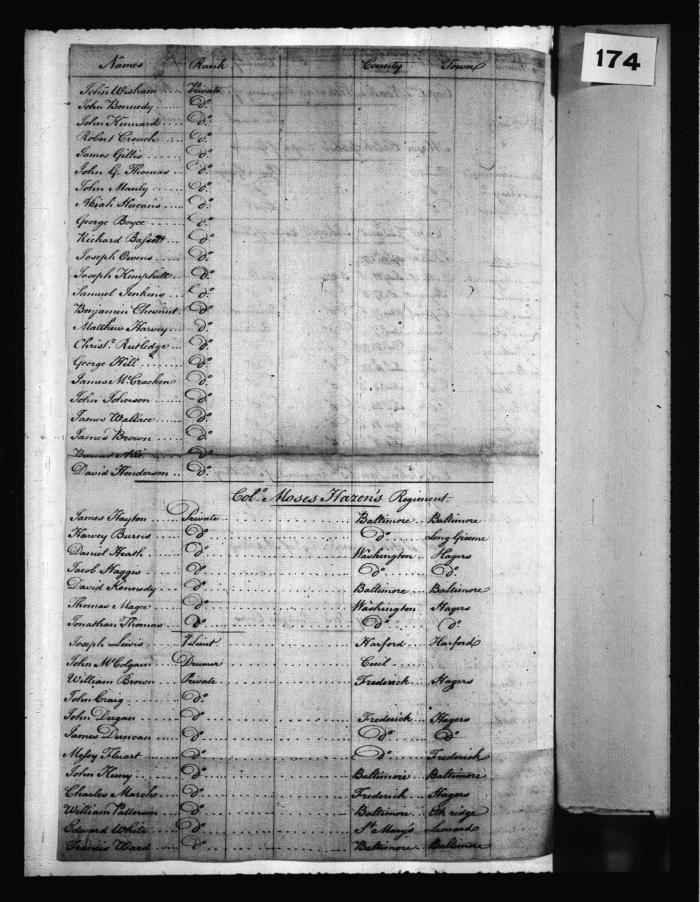 174
Names Rank County Town
John Wisham Private
John Bennedy do
John Kinnard do
Robert Crouch do
James Gillis do
John G. Thomas do
John Manly do
do
George Boyce do
Richard Bassett do
Joseph Owens do
Joseph Kemphill do
Samuel Jenkins do
Benjamin Chesnut do
Matthew Harvey do
Christr. Rutledge do
George Hill do
James McCracken do
John Johnson do
James Wallace do
James Brown do
do
David Henderson do
Colo. Moses Hazen's Regiment
James Hayton Private Baltimore Baltimore
Harvey Burns do do Long Greene
Daniel Heath do Washington Hagers
Jacob Haggis do do do
David Kennedy do Baltimore Baltimore
Thomas Magee do Washington Hagers
Jonathan Thomas do do do
Joseph Lewis Lieut Harford Harford
John McColgain Drumer Cecil
William Brown Private Frederick Hagers
John Craig do
John Dugan do Frederick Hagers
James Duncan do do do
Fluart do do Frederick
John Huny do Baltimore Baltimore
Charles Marcho do Frederick Hagers
William Patterson do Baltimore Elk ridge
Edward White do St Mary's Leonard
Francis Ward do Baltimore Baltimore